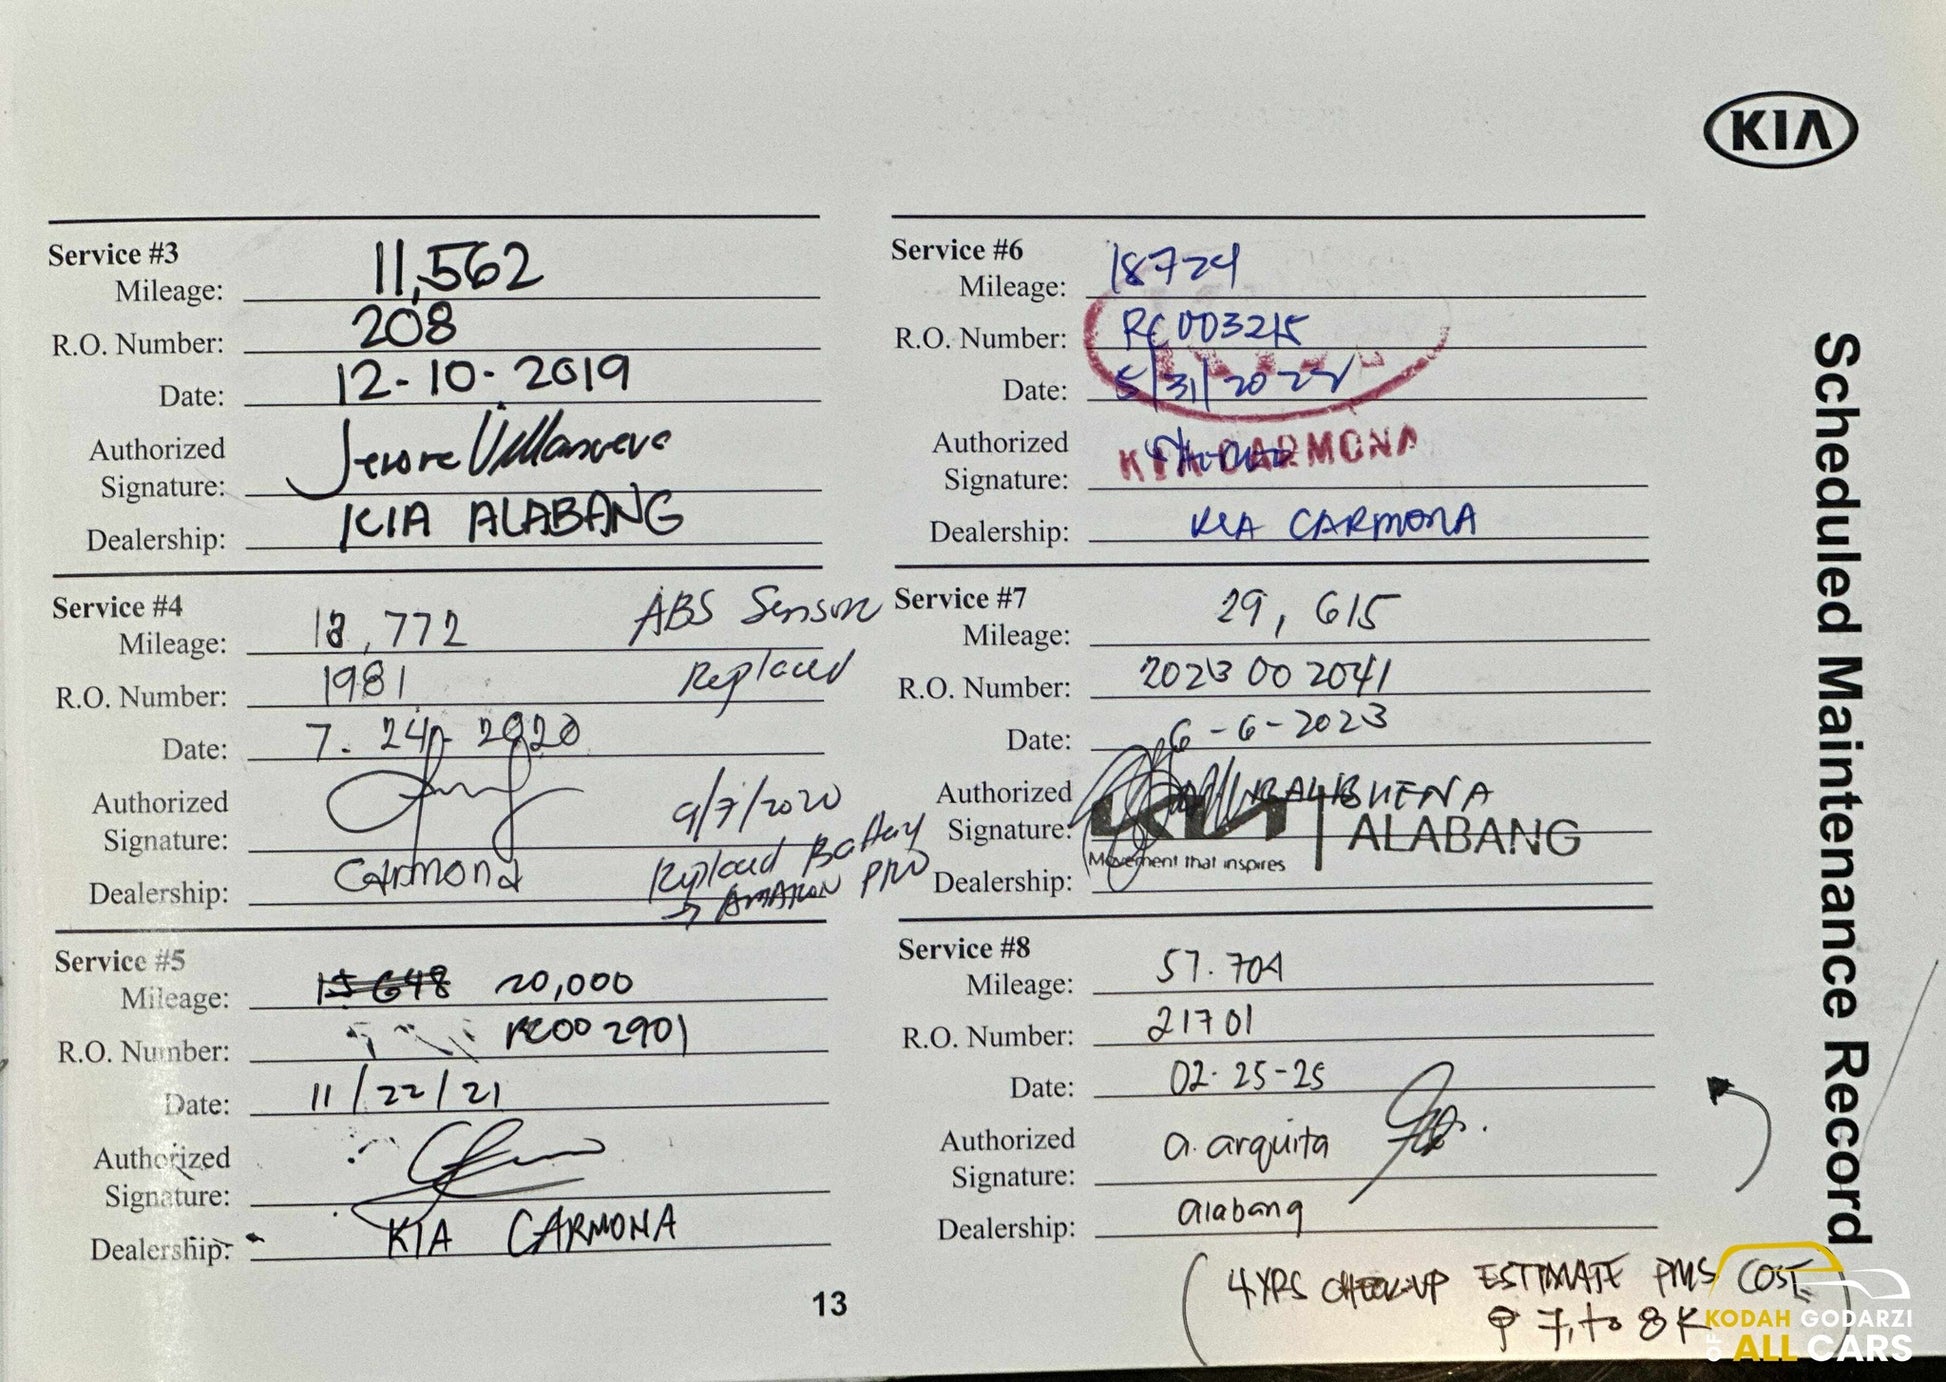 KIA
Scheduled Maintenance Record
Service #3
Mileage: 11,562
R.O. Number: 208
Date: 12-10-2019
Authorized
Signature: Jerome Villanueva
Dealership: KIA ALABANG
Service #4
Mileage: 12,772
ABS Sensor
Replaced
R.O. Number: 1981
Date: 7. 24. 2020
Authorized
Signature:
Dealership: Carmona
9/7/2020
Replaced Battery
→ AMARON PRO
Service #5
Mileage: 15 648 20,000
R.O. Number: RC002901
Date: 11/22/21
Authorized
Signature:
Dealership: KIA CARMONA
Service #6
Mileage: 18724
R.O. Number: RC003215
Date: 5/31/2022
Authorized
KIA CARMONA
Signature:
Dealership: KIA CARMONA
Service #7
Mileage: 29,615
R.O. Number: 2023002041
Date: 6-6-2023
Authorized
Signature:
KIA | ALABANG
Movement that inspires
Dealership:
Service #8
Mileage: 57.704
R.O. Number: 21701
Date: 02-25-25
Authorized
Signature: a. arquita
Dealership: alabang
(4 YRS CHECK-UP ESTIMATE PMS COST
₱ 7, to 8K)
13
KODAH GODARZI
OF ALL CARS